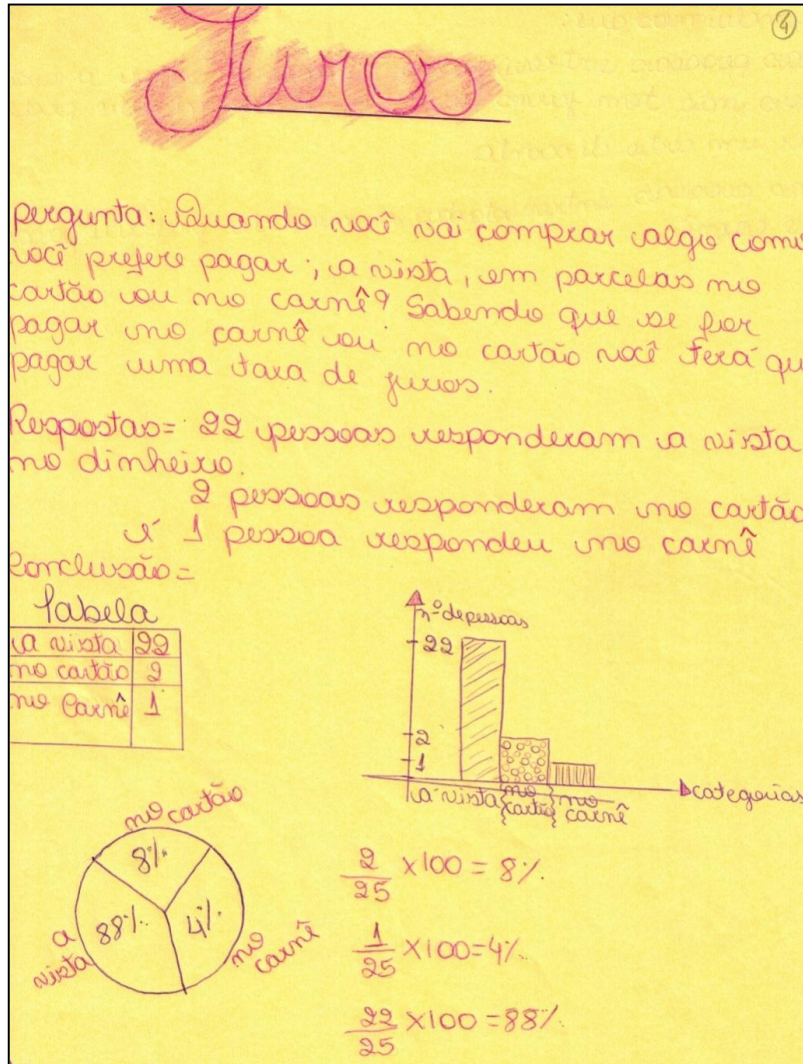 4
Juros
pergunta: Quando você vai comprar algo como
você prefere pagar; a vista, em parcelas no
cartão ou no carnê? Sabendo que se for
pagar no carnê ou no cartão você terá qu
pagar uma taxa de juros.
Respostas= 22 pessoas responderam a vista
no dinheiro.
2 pessoas responderam no cartão
é 1 pessoa respondeu no carnê
Conclusão=
Tabela
a vista 22
no cartão 2
no Carnê 1
nº de pessoas
22
2
1
a vista no cartão no carnê
categorias
no cartão
8%
88%
4%
a vista
no carnê
2/25 x100 = 8%.
1/25 x100=4%.
22/25 x100 =88%